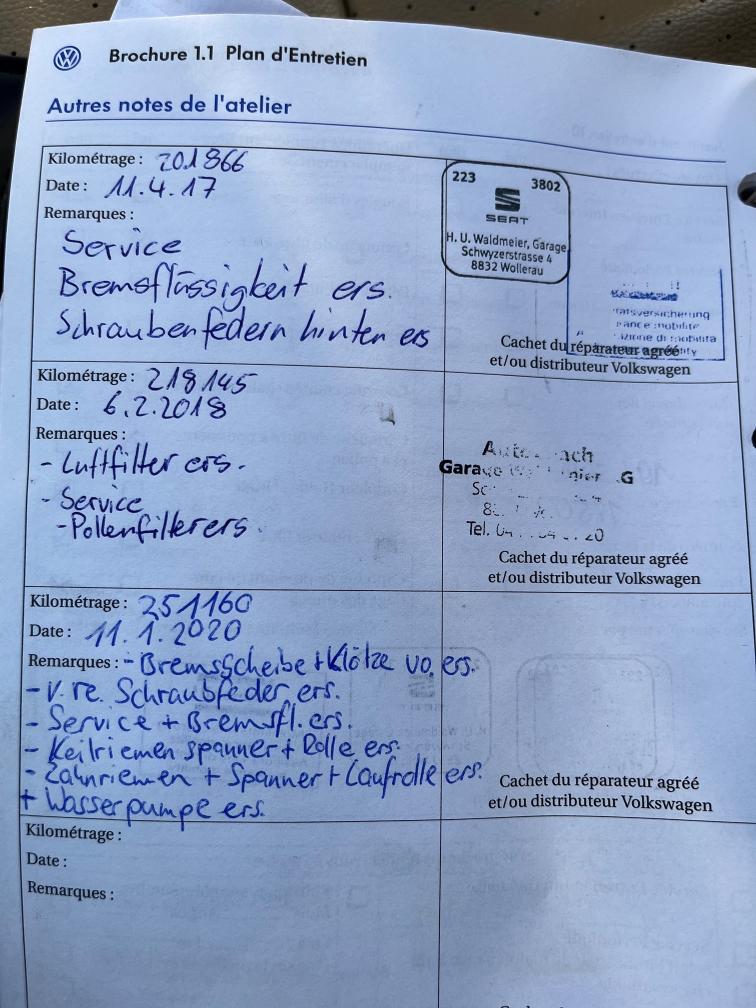 Brochure 1.1 Plan d'Entretien
Autres notes de l'atelier
Kilométrage : 201866
Date : 11.4.17
Remarques :
Service
Bremsflüssigkeit ers.
Schraubenfedern hinten ers
223 3802
SEAT
H. U. Waldmeier, Garage
Schwyzerstrasse 4
8832 Wollerau
Cachet du réparateur agréé
et/ou distributeur Volkswagen
Kilométrage : 218145
Date : 6.2.2018
Remarques :
- Luftfilter ers.
- Service
- Pollenfilter ers.
Tel.
Cachet du réparateur agréé
et/ou distributeur Volkswagen
Kilométrage : 251160
Date : 11.1.2020
Remarques : - Bremsscheibe + Klötze vo. ers.
- v. re. Schraubfeder ers.
- Service + Bremsfl. ers.
- Keilriemen spanner + Rolle ers.
- Zahnriemen + Spanner + Laufrolle ers.
+ Wasserpumpe ers.
Cachet du réparateur agréé
et/ou distributeur Volkswagen
Kilométrage :
Date :
Remarques :